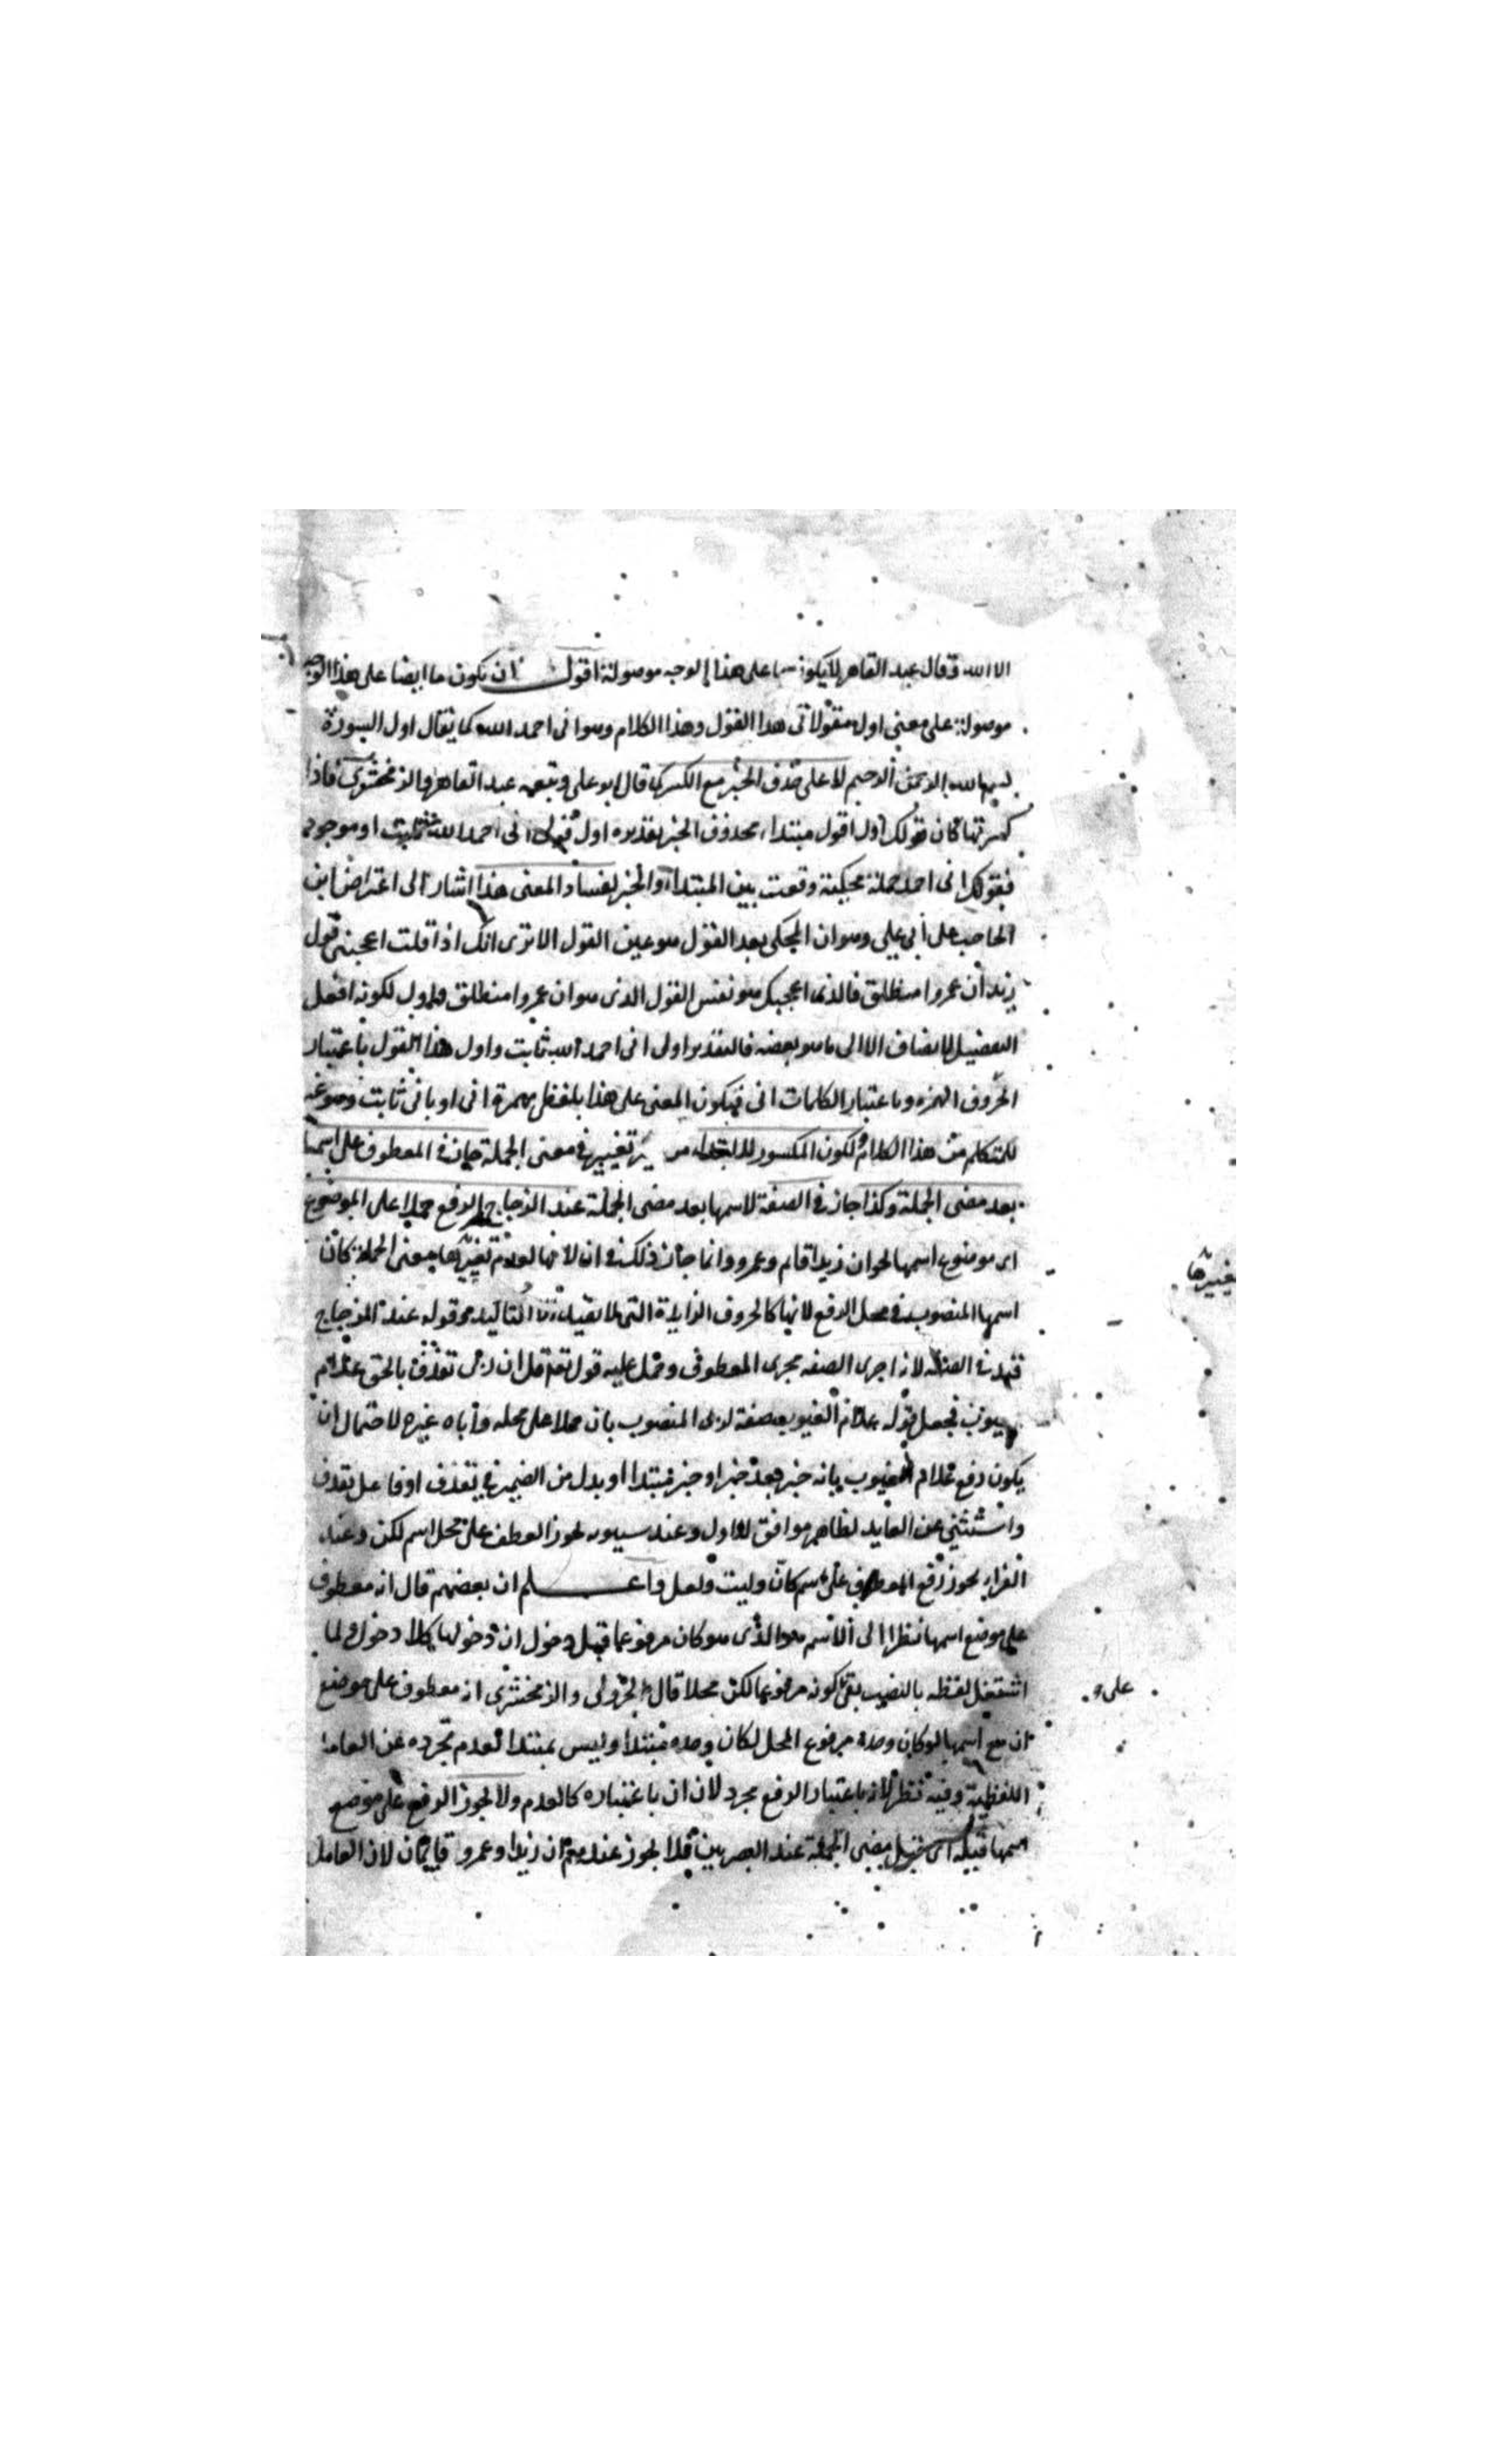 الا الله وقال عبد القاهر لا يكون ما على هذا الوجه موصولة اقول ان يكون ما ايضا على هذا الوجه
موصولة على معنى اول مقولاتى هذا القول وهذا الكلام وهو انى احمد الله كما يقال اول السورة
بسم الله الرحمن الرحيم لا على حذف الخبر مع الكسر كما قال ابو على وتبعه عبد القاهر والزمخشرى فاذا
كسرتها كان قولك اول اقول مبتداء محذوف الخبر تقديره اول قولى انى احمد الله ثابت او موجود
فقولك انى احمد جملة محكية وقعت بين المبتداء والخبر لفساد المعنى هذا اشارة الى اعتراض ابن
الحاجب على أبى على وهو ان المحكى بعد القول هو عين القول الا ترى انك اذا قلت اعجبنى قول
زيد ان عمروا منطلق فالذى اعجبك هو نفس القول الذى هو ان عمروا منطلق واول لكونه افعل
التفضيل لا يضاف الا الى ما هو بعضه فالتقدير اول انى احمد الله ثابت واول هذا القول باعتبار
الحروف الهمزه وباعتبار الكلمات انى فيكون المعنى على هذا بلفظ همزة انى او بانى ثابت وهو غير
للمتكلم من هذا الكلام ولكون المكسور للابتداء من تغييرها فى معنى الجملة جاز فى المعطوف على اسمها
بعد مضى الجملة وكذا جاز فى الصفة لاسمها بعد مضى الجملة عند الزجاج الرفع حملا على الموضوع
اى موضوع اسمها نحو ان زيدا قام وعمرو وانما جاز ذلك فى ان لانها لعدم تغييرها معنى الجملة كان
اسمها المنصوب فى محل الرفع لانها كالحروف الزايدة التى لا تفيد الا التاكيد وقوله عند الزجاج
قيد فى الصفة لانه اجرى الصفه مجرى المعطوف وحمل عليه قوله تع قل ان ربى يقذف بالحق علام
الغيوب فجعل قوله علام الغيوب صفة لربى المنصوب بان حملا على محله وأباه غيره لاحتمال ان
يكون رفع علام الغيوب بانه خبر بعد خبر او خبر مبتدا او بدل من الضمير فى يقذف او فاعل يقذف
واستثنى عن العايد لظاهر موافق للاول وعند سيبويه يجوز العطف على محل اسم لكن وعند
الفراء يجوز رفع المعطوف على اسم كان وليت ولعل واعلم ان بعضهم قال انه معطوف
على موضع اسمها نظرا الى ان الاسم هو الذى هو كان مرفوعا قبل دخول ان ودخولها كلا دخول ولما
اشتغل لفظه بالنصب بقى كونه مرفوعا لكن محلا قال الجزولى والزمخشرى انه معطوف على موضع
على و
ان مع اسمها لو كان وحده مرفوع المحل لكان وحده مبتدا وليس بمبتدا لعدم تجرده عن العامل
اللفظية وفيه نظر لانه باعتبار الرفع مجرد لان ان باعتباره كالعدم ولا يجوز الرفع على موضع
اسمها قبله اى قبل مضى الجملة عند البصريين فلا يجوز عندهم ان زيدا وعمرو قايمان لان العامل